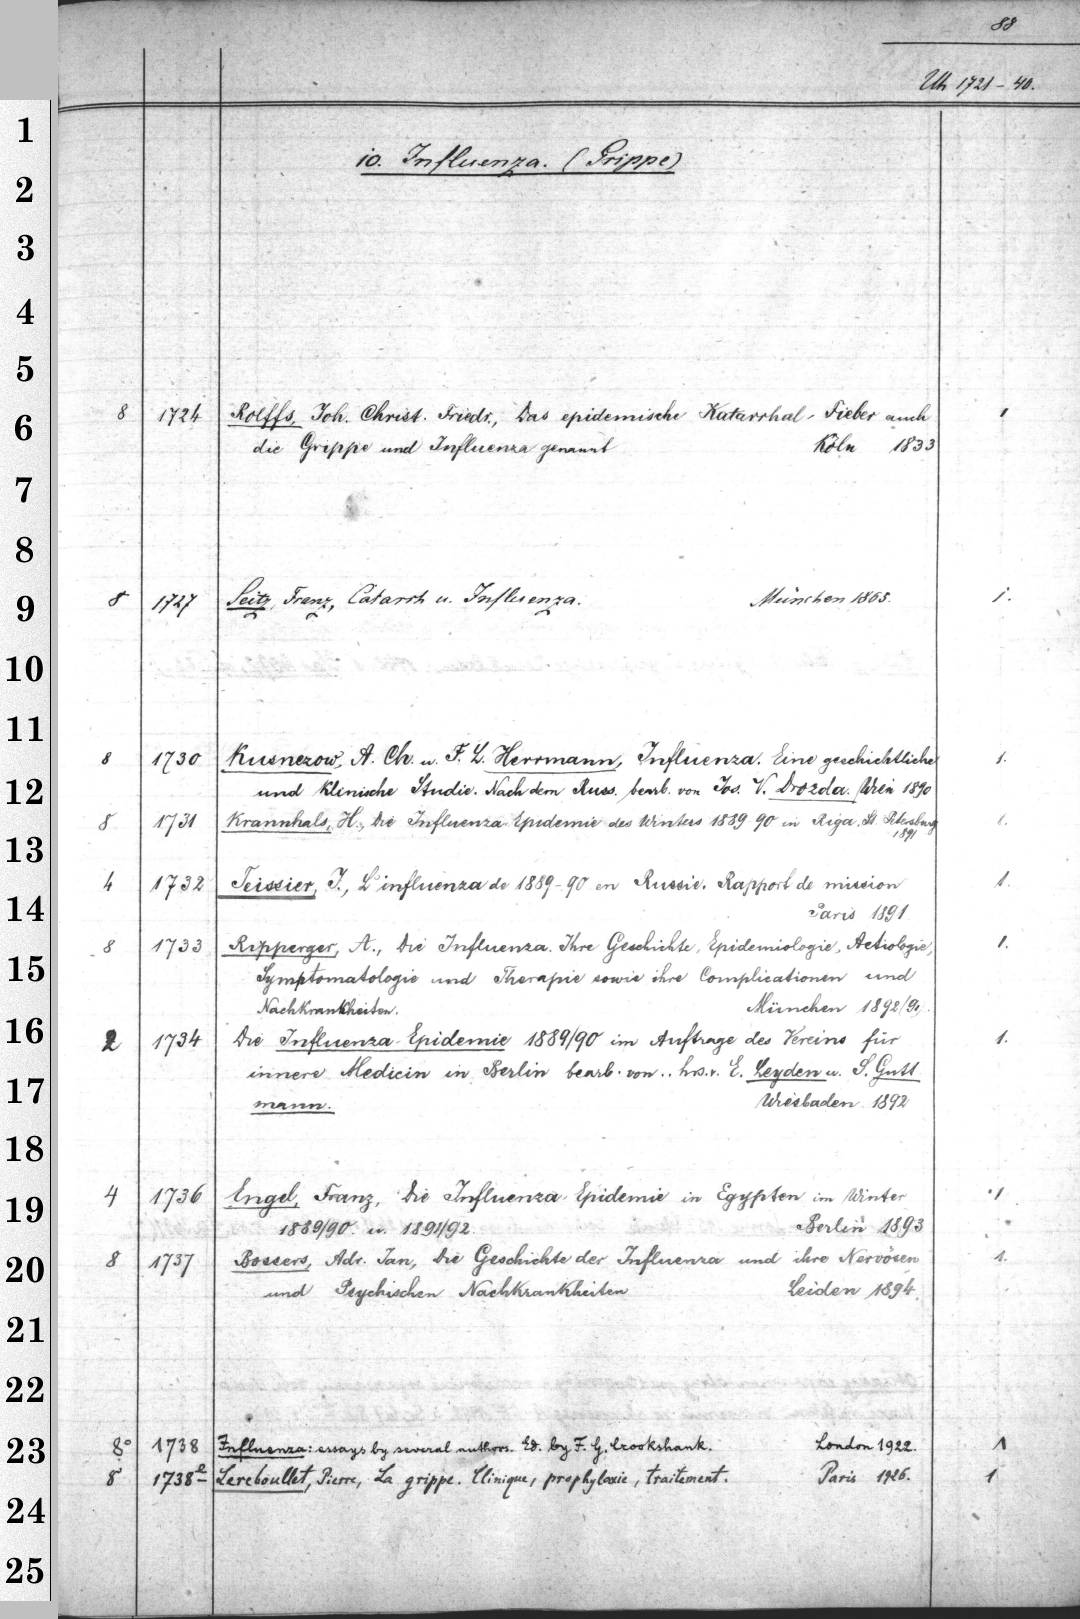 88
Uh 1721-40.
10. Influenza. (Grippe)
8 1724 Rolffs, Joh. Christ. Friedr., Das epidemische Katarrhal-Fieber auch 1
die Grippe und Influenza genannt Köln 1833
8 1727 Seitz, Franz, Catarrh u. Influenza. München 1865. 1.
8 1730 Kusnezow, A. Ch. u. F. L. Herrmann, Influenza. Eine geschichtliche 1.
und klinische Studie. Nach dem Russ. bearb. von Jos. V. Drozda. Wien 1890
8 1731 Krannhals, H., Die Influenza-Epidemie des Winters 1889 90 in Riga. St. Petersburg 1.
1891
4 1732 Teissier, J., L'influenza de 1889-90 en Russie. Rapport de mission 1.
Paris 1891
8 1733 Ripperger, A., Die Influenza. Ihre Geschichte, Epidemiologie, Aetiologie, 1.
Symptomatologie und Therapie sowie ihre Complicationen und
Nachkrankheiten. München 1892
2 1734 Die Influenza-Epidemie 1889/90 im Auftrage des Vereins für 1.
innere Medicin in Berlin bearb. von .. hrs. v. E. Leyden u. S. Gutt
mann. Wiesbaden 1892
4 1736 Engel, Franz, Die Influenza-Epidemie in Egypten im Winter 1
1889/90. u. 1891/92. Berlin 1893
8 1737 Bossers, Adr. Jan, Die Geschichte der Influenza und ihre Nervösen 1.
und Psychischen Nachkrankheiten Leiden 1894.
8° 1738 Influenza: essays by several authors. Ed. by F. G. Crookshank. London 1922. 1
8 1738 Lereboullet, Pierre, La grippe. Clinique, prophylaxie, traitement. Paris 1926. 1
1
2
3
4
5
6
7
8
9
10
11
12
13
14
15
16
17
18
19
20
21
22
23
24
25